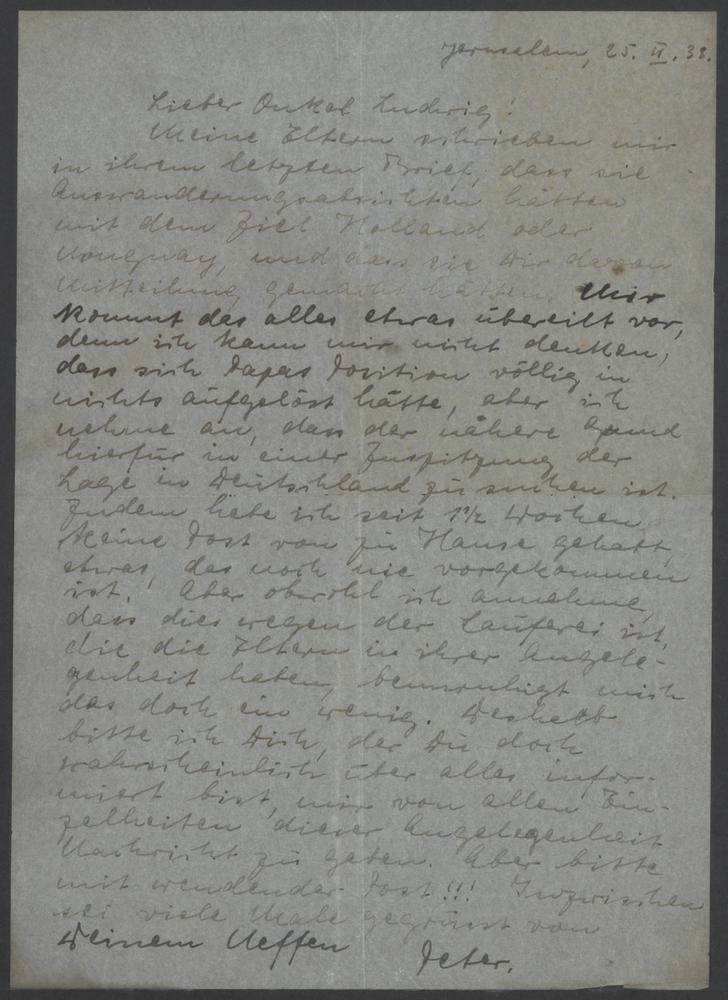 Jerusalem, 25. II. 38.
Lieber Onkel Ludwig!
Meine Eltern schrieben mir
in ihrem letzten Brief, dass sie
Auswanderungsabsichten hätten
mit dem Ziel Holland oder
Uruguay, und dass sie Dir davon
Mitteilung gemacht hätten. Mir
kommt das alles etwas übereilt vor,
denn ich kann mir nicht denken,
dass sich Papas Position völlig in
nichts aufgelöst hätte, aber ich
nehme an, dass der nähere Grund
hierfür in einer Zuspitzung der
Lage in Deutschland zu suchen ist.
Zudem habe ich seit 1½ Wochen
keine Post von zu Hause gehabt,
etwas, das noch nie vorgekommen
ist! Aber obwohl ich annehme,
dass dies wegen der Lauferei ist,
die die Eltern in ihrer Angele-
genheit haben, beunruhigt mich
das doch ein wenig. Deshalb
bitte ich Dich, der Du doch
wahrscheinlich über alles infor-
miert bist, mir von allen Ein-
zelheiten dieser Angelegenheit
Nachricht zu geben. Aber bitte
mit wendender Post!!! Inzwischen
sei viele Male gegrüsst von
Deinem Neffen Peter.